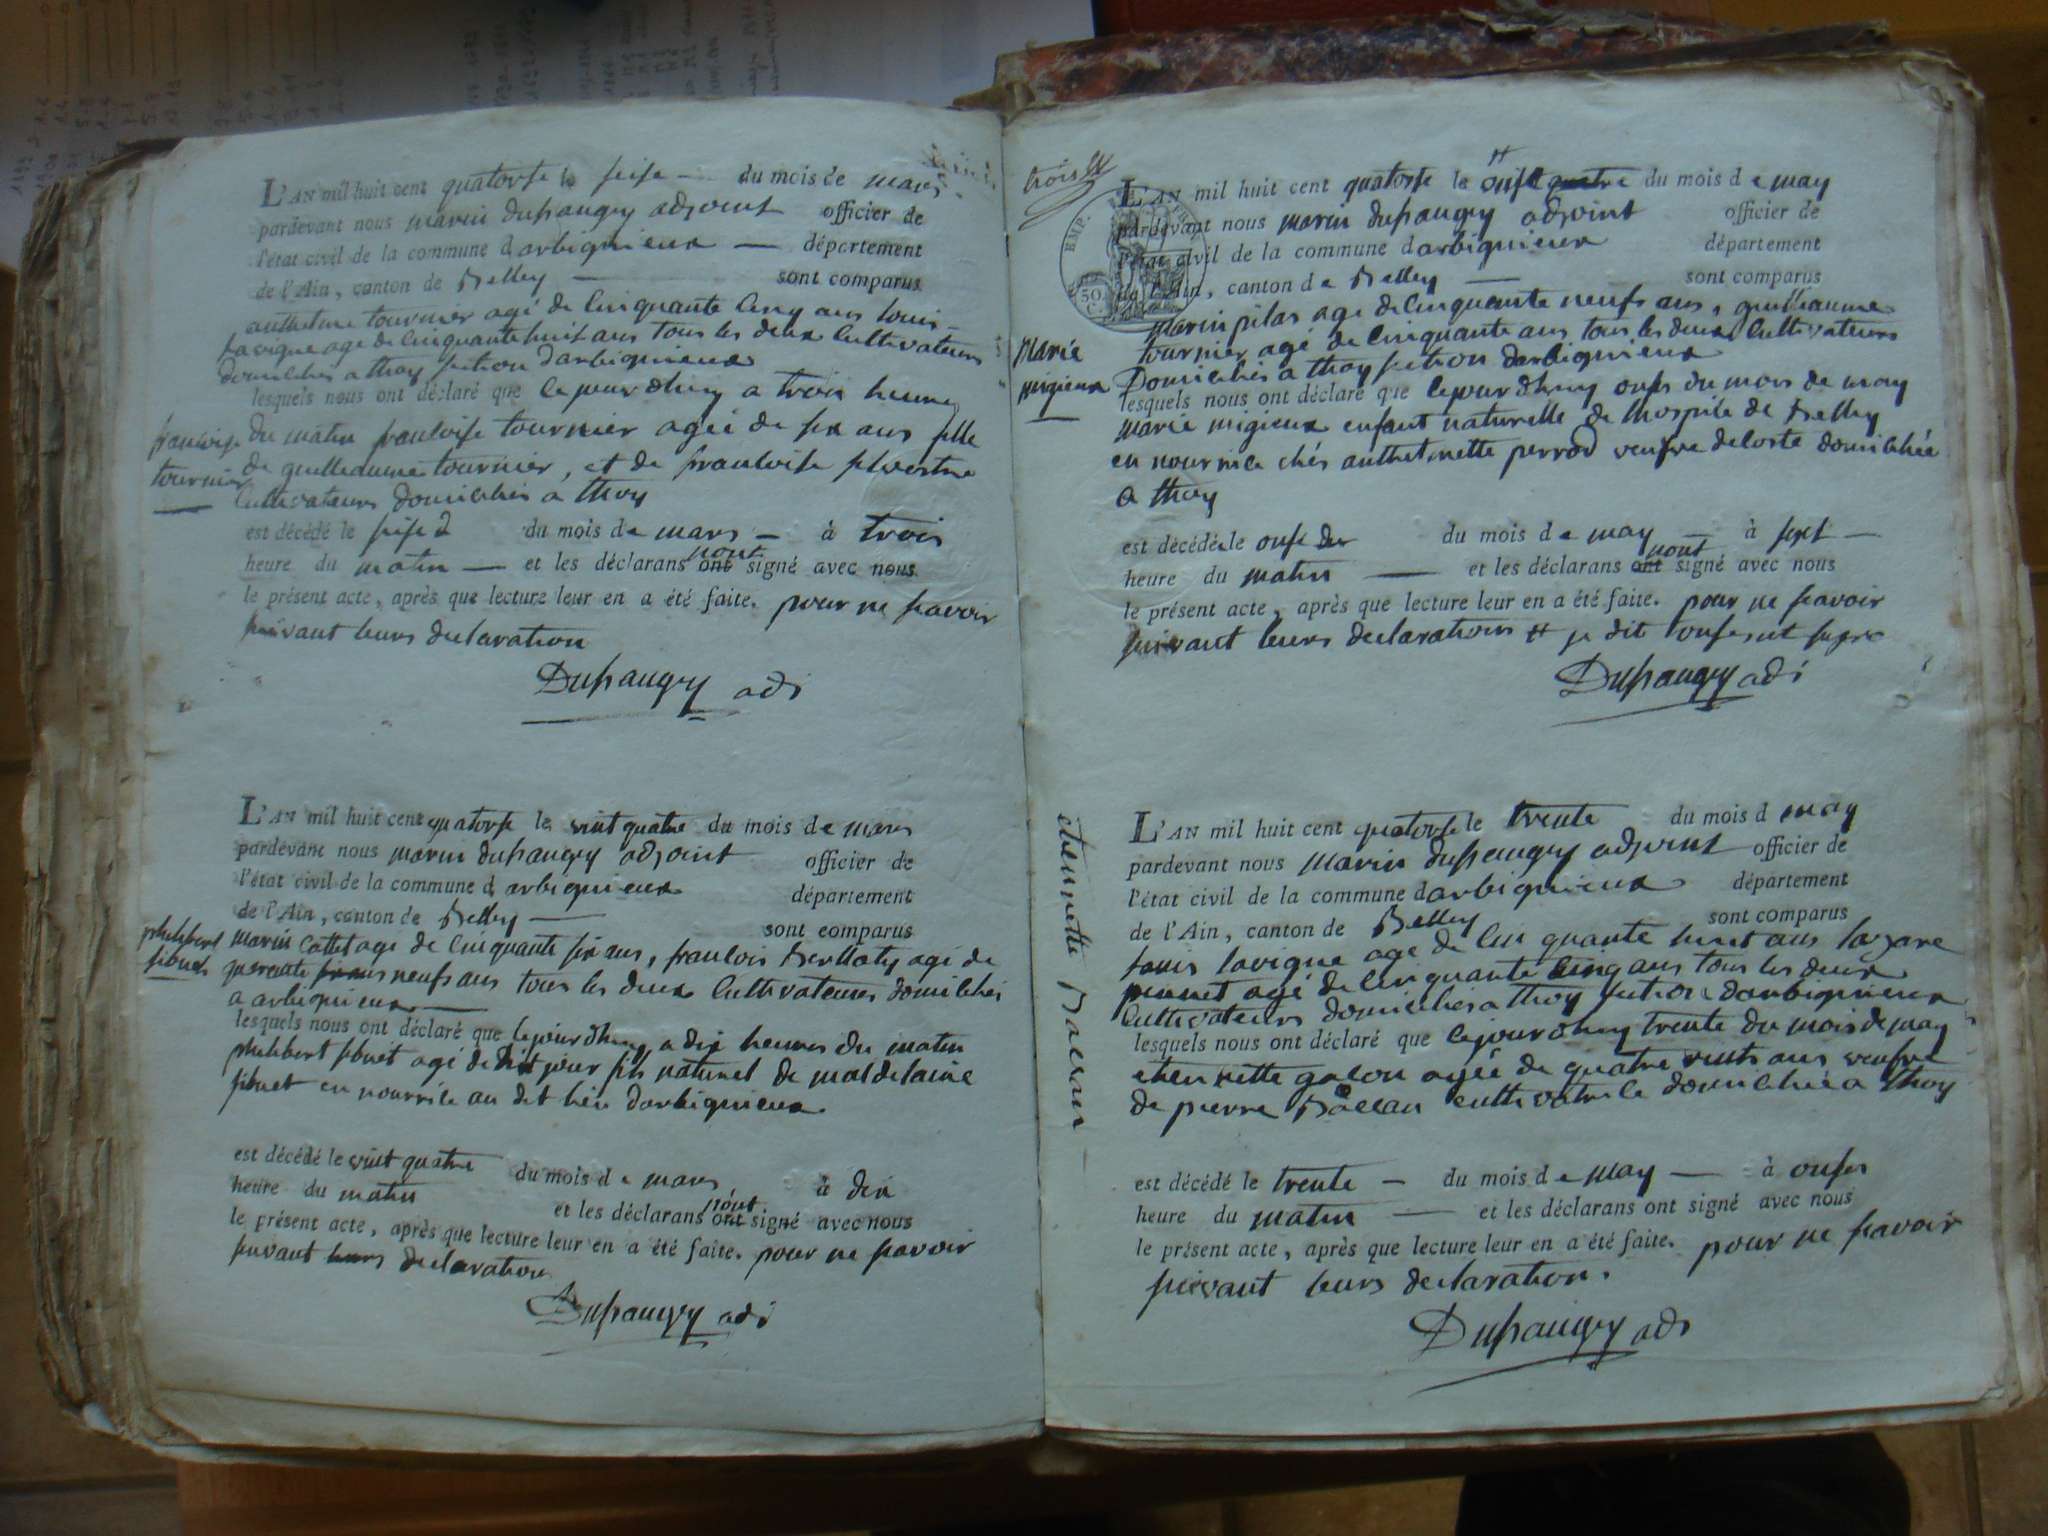 L'AN mil huit cent quatorse le seise du mois de mars
pardevant nous marin dupraugey adjoint officier de
l'état civil de la commune darbignieux — département
de l'Ain, canton de Belley — sont comparus
anthelme tournier agé de cinquante cinq ans louis
lavigne age de cinquante huit ans tous les deux cultivateurs
domiciliés a thoy section darbignieux
lesquels nous ont déclaré que cejourdhuy a trois heures
du matin francoise tournier ageé de six ans fille
de guilleaume tournier, et de francoise silvestre
cultivateurs domiciliés a thoy
est décédé le seise du mois de mars — à trois
heure du matin — et les déclarans nont signé avec nous
le présent acte, après que lecture leur en a été faite. pour ne savoir
suivant leurs declaration
adj
francoise
tournier
L'AN mil huit cent quatorse le vint quatre du mois de mars
pardevant nous marin adjoint officier de
l'état civil de la commune d arbignieux département
de l'Ain, canton de Belley — sont comparus
marin cottet age de cinquante six ans, francois agé de
quarente neufs ans tous les deux cultivateurs domiciliés
a arbignieux —
lesquels nous ont déclaré que cejourdhuy a dix heures du matin
philibert sibuet agé de jour fils naturel de maidelaine
sibuet en nourrise au dit lieu darbignieux
est décédé le vint quatre du mois de mars à dix
heure du matin et les déclarans nont signé avec nous
le présent acte, après que lecture leur en a été faite. pour ne savoir
suivant leurs declaration
adj
philibert
sibuet
trois
EMP.
50
C.
L'AN mil huit cent quatorse le onse quatre du mois de may
pardevant nous marin adjoint officier de
l'état civil de la commune darbignieux département
de l'Ain, canton de Belley — sont comparus
Marin pilas age de cinquante neufs ans, guilleaume
tournier agé de cinquante ans tous les deux cultivateurs
Domiciliés a thoy section darbignieux
lesquels nous ont déclaré que cejourdhuy onse du mois de may
marie migieux enfant naturelle de lhospice de Belley
en nourrice chés perrod veufve deloste domiciliée
a thoy
est décédé le onse du mois de may — à sept —
heure du matin — et les déclarans nont signé avec nous
le présent acte, après que lecture leur en a été faite. pour ne savoir
suivant leurs declarations # je dit onse
adj
marie
migieux
L'AN mil huit cent quatorse le trente du mois d may
pardevant nous marin adjoint officier de
l'état civil de la commune darbignieux département
de l'Ain, canton de Belley sont comparus
louis lavigne age de cinquante huit ans lazare
agé de cinquante cinq ans tous les deux
cultivateurs domiciliés a thoy section darbignieux
lesquels nous ont déclaré que cejourdhuy trente du mois de may
etiennette ageé de quatre vints ans veufve
de pierre cultivatrice domiciliée a thoy
est décédé le trente — du mois de may — à onses
heure du matin — et les déclarans ont signé avec nous
le présent acte, après que lecture leur en a été faite. pour ne savoir
suivant leurs declaration.
adj
etiennette